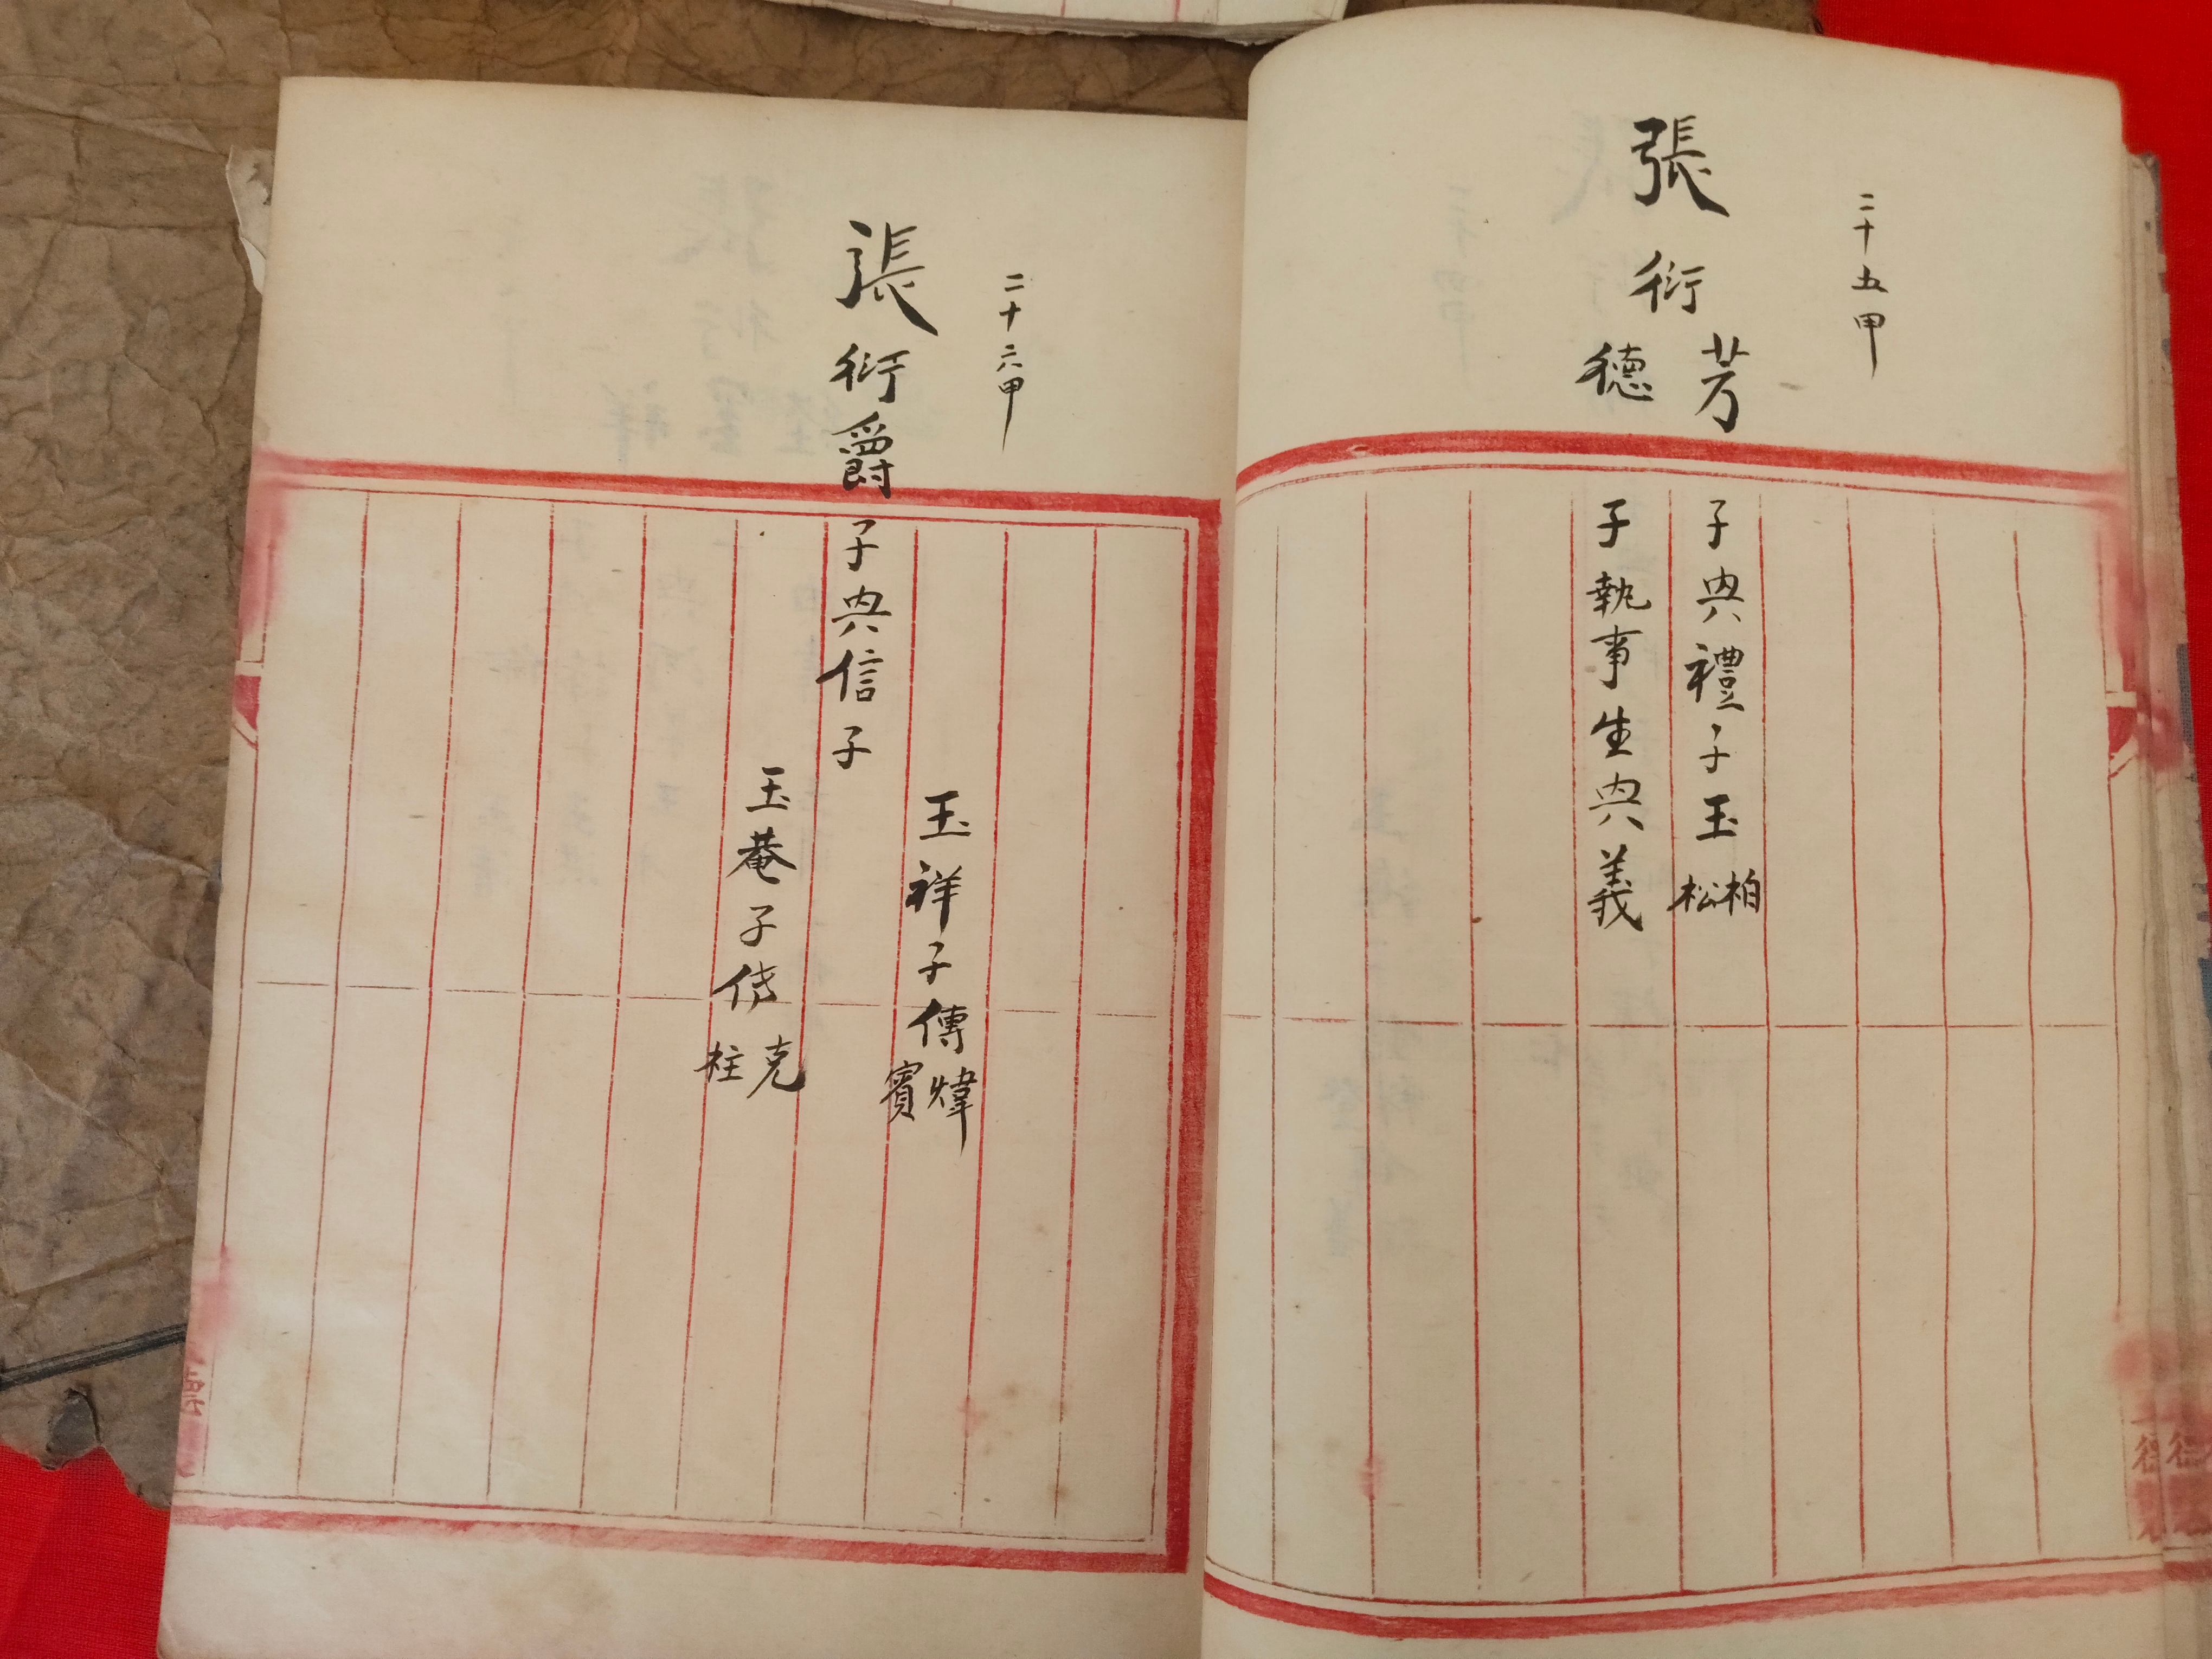 二十五甲
張衍芳德
子典禮子玉柏松
子執事生典義
二十六甲
張衍爵子典信子
玉祥子傳煒賓
玉菴子傳克柱